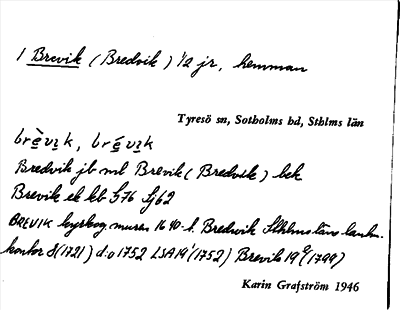 1 Brevik (Bredvik) 1/2 jr, hemman
Tyresö sn, Sotholms hd, Sthlms län
brèvik, brévik
Bredvik jb ml Brevik (Bredvik) bek
Brevik ek kb S76 Sj62
BREVIK kyrkog. muren 1640-t. Bredvik Sthlms läns lantm.
kontor 8 (1721) d:o 1752 LSA 19¹ (1752) Brevik 19⁹ (1799)
Karin Grafström 1946